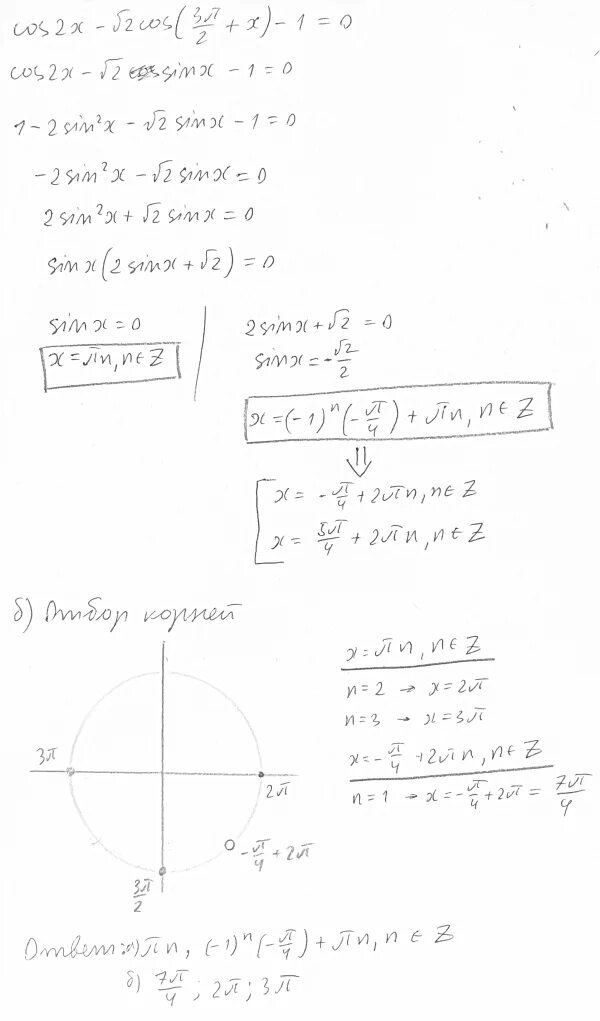 cos2x - √2cos(3π/2 + x) - 1 = 0
cos2x - √2 sinx - 1 = 0
1 - 2sin²x - √2 sinx - 1 = 0
-2sin²x - √2 sinx = 0
2sin²x + √2 sinx = 0
sinx(2sinx + √2) = 0
sinx = 0
x = πn, n ∈ Z
2sinx + √2 = 0
sinx = -√2/2
x = (-1)ⁿ(-π/4) + πn, n ∈ Z
⇓
x = -π/4 + 2πn, n ∈ Z
x = 5π/4 + 2πn, n ∈ Z
б) Отбор корней
3π
2π
-π/4 + 2π
3π/2
x = πn, n ∈ Z
n = 2 → x = 2π
n = 3 → x = 3π
x = -π/4 + 2πn, n ∈ Z
n = 1 → x = -π/4 + 2π = 7π/4
Ответ: а) πn, (-1)ⁿ(-π/4) + πn, n ∈ Z
б) 7π/4; 2π; 3π